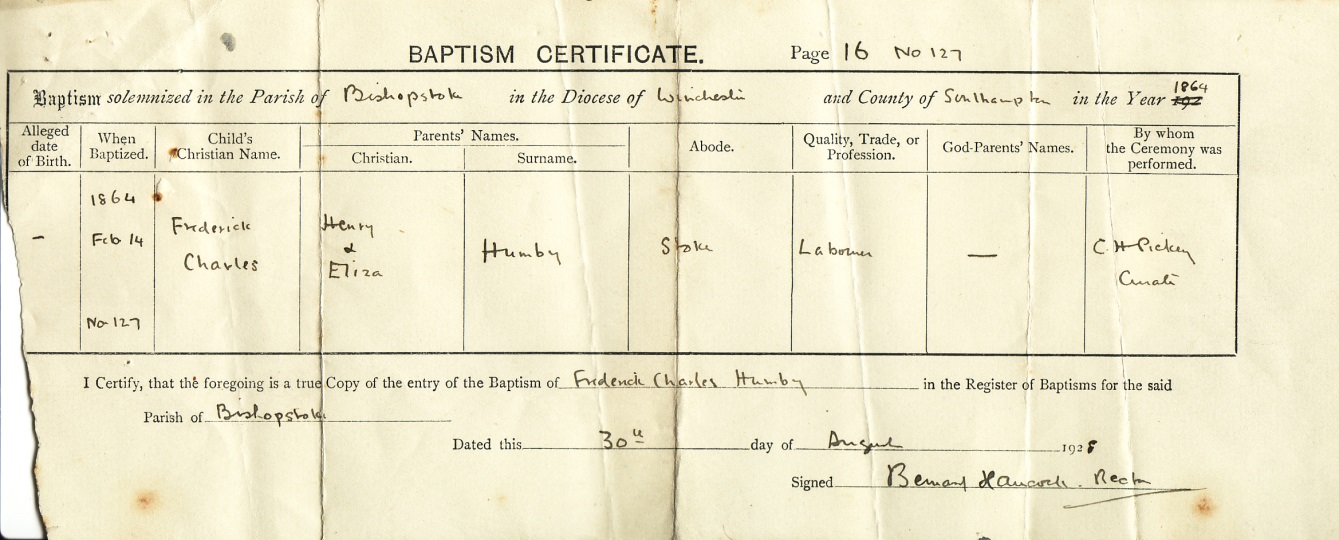 BAPTISM CERTIFICATE. Page 16 No 127
Baptism solemnized in the Parish of Bishopstoke in the Diocese of Winchester and County of Southampton in the Year 192 1864
Alleged date of Birth.
When Baptized.
Child's Christian Name.
Parents' Names.
Christian.
Surname.
Abode.
Quality, Trade, or Profession.
God-Parents' Names.
By whom the Ceremony was performed.
–
1864
Feb 14
No 127
Frederick
Charles
Henry
&
Eliza
Humby
Stoke
Labourer
—
C H
Curate
I Certify, that the foregoing is a true Copy of the entry of the Baptism of Frederick Charles Humby in the Register of Baptisms for the said
Parish of Bishopstoke
Dated this 30th day of August 1928
Signed Bernard Hancock. Rector